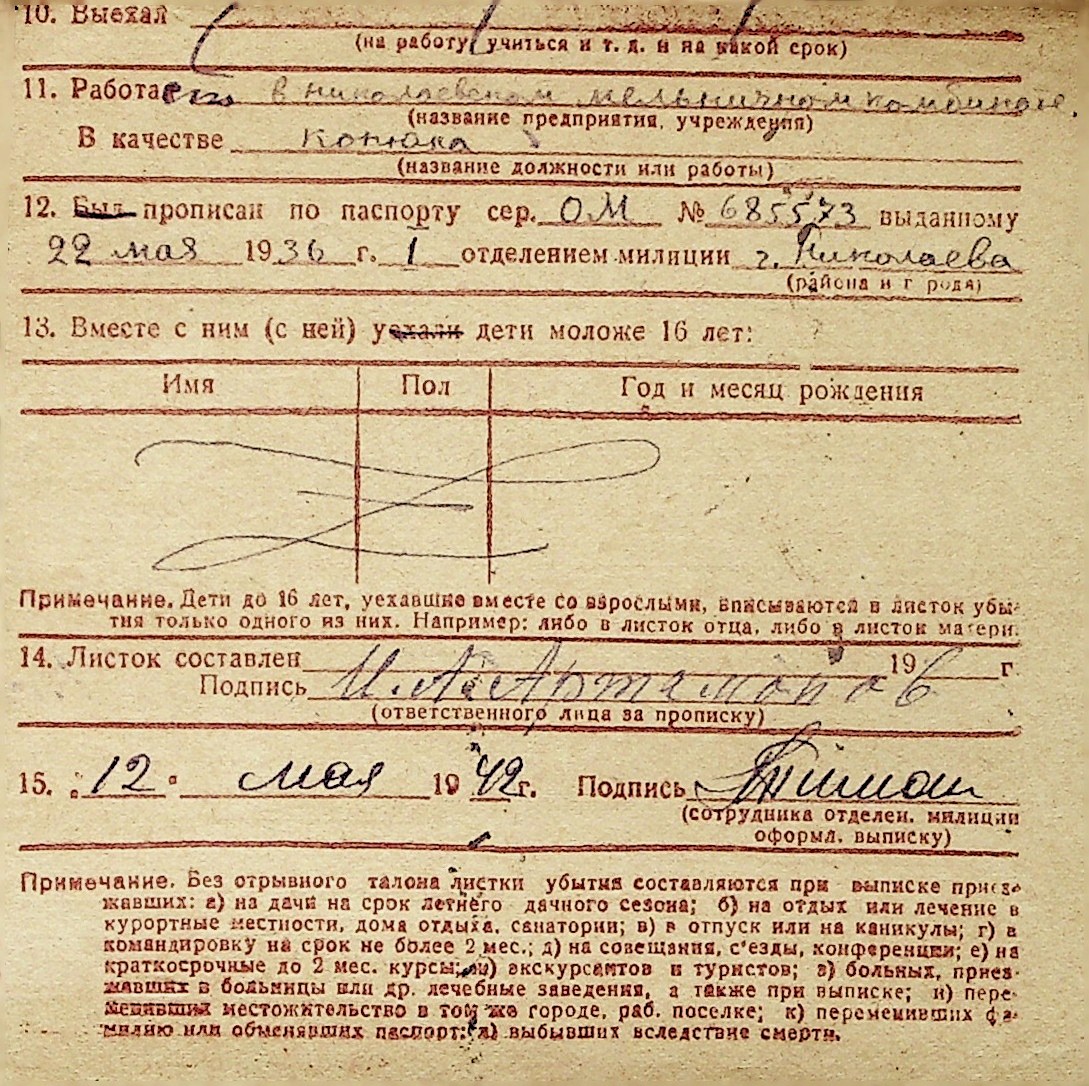 10. Выехал
(на работу, учиться и т. д. и на какой срок)
11. Работает в николаевском мельничном комбинате.
(название предприятия, учреждения)
В качестве конюха
(название должности или работы)
12. Был прописан по паспорту сер. ОМ № 685573 выданному
22 мая 1936 г. 1 отделением милиции г. Николаева
(района и г рода)
13. Вместе с ним (с ней) уехали дети моложе 16 лет:
Имя Пол Год и месяц рождения
Примечание. Дети до 16 лет, уехавшие вместе со взрослыми, вписываются в листок убы-
тия только одного из них. Например: либо в листок отца, либо в листок матери.
14. Листок составлен 19 г
Подпись И. А. Артамонов
(ответственного лица за прописку)
15. "12" мая 1942 г. Подпись
(сотрудника отделен. милиции
оформл. выписку)
Примечание. Без отрывного талона листки убытия составляются при выписке приез-
жавших: а) на дачи на срок летнего дачного сезона; б) на отдых или лечение в
курортные местности, дома отдыха, санатории; в) в отпуск или на каникулы; г) в
командировку на срок не более 2 мес.; д) на совещания, с'езды, конференции; е) на
краткосрочные до 2 мес. курсы; ж) экскурсантов и туристов; з) больных, приез-
жавших в больницы или др. лечебные заведения, а также при выписке; и) пере-
менивших местожительство в том же городе, раб. поселке; к) переменивших фа-
милию или обменявших паспорт; л) выбывших вследствие смерти.